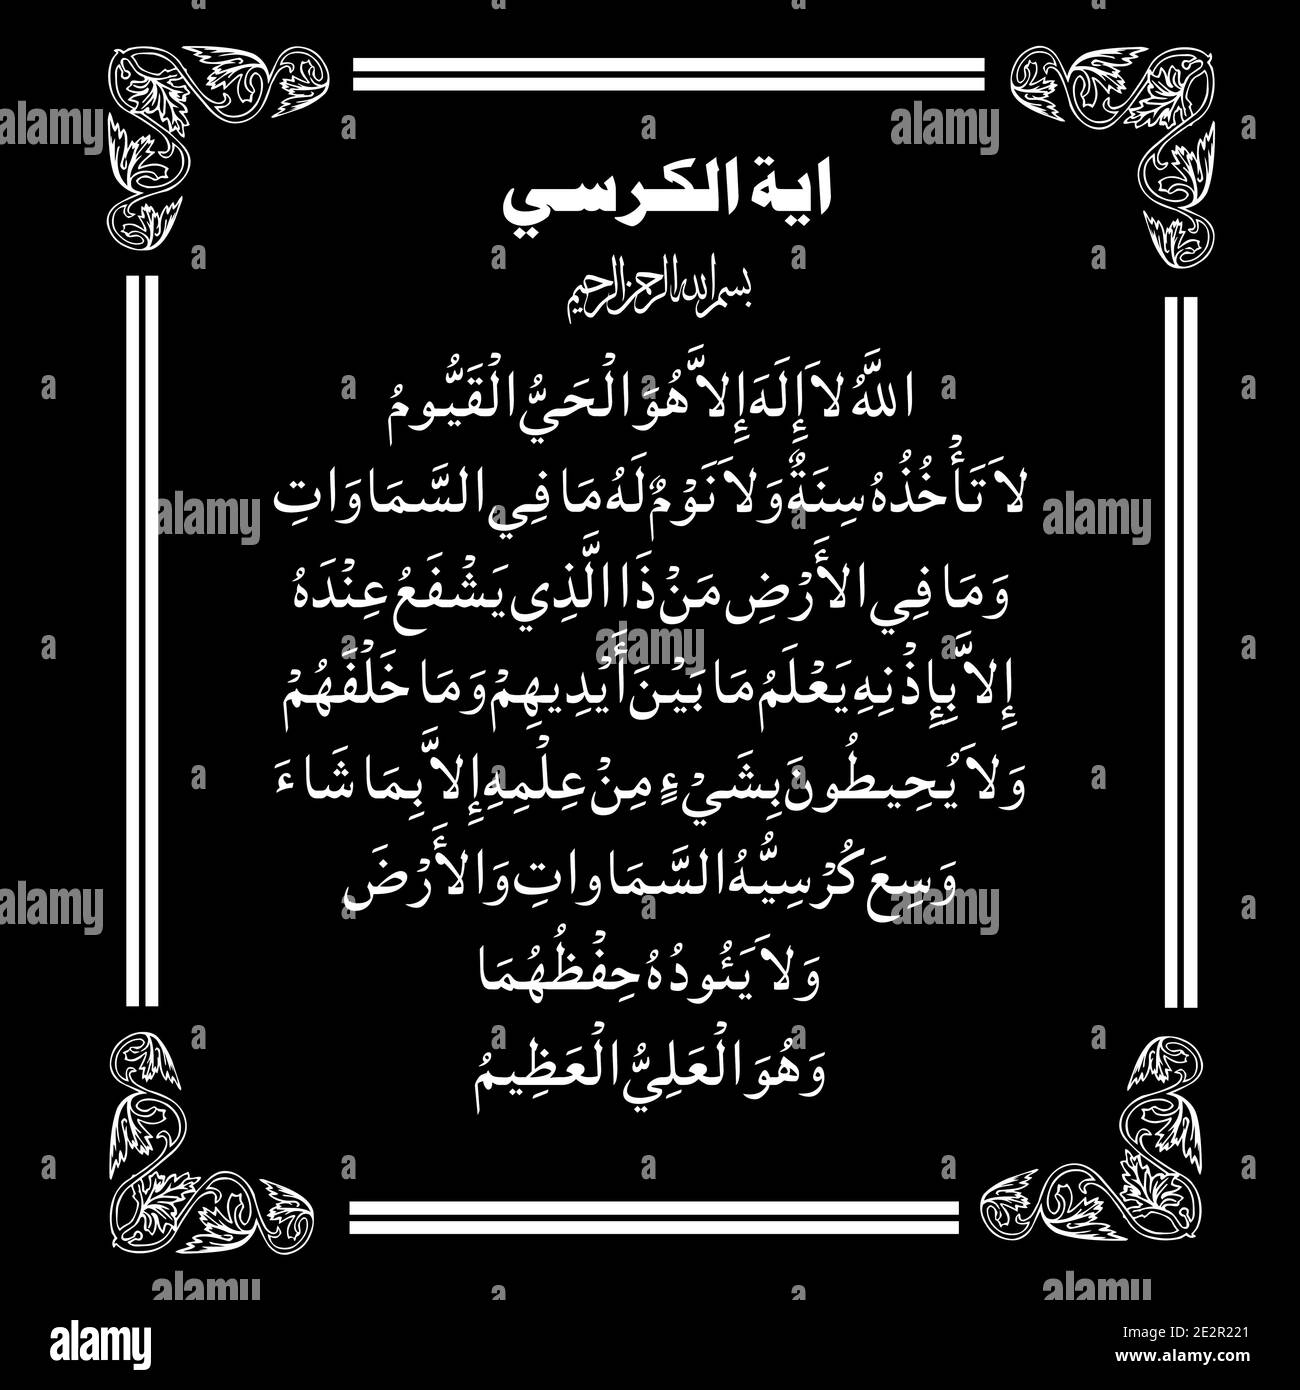 اية الكرسي
بسم الله الرحمن الرحيم
اللَّهُ لاَ إِلَهَ إِلاَّ هُوَ الْحَيُّ الْقَيُّومُ
لاَ تَأْخُذُهُ سِنَةٌ وَلاَ نَوْمٌ لَهُ مَا فِي السَّمَاوَاتِ
وَمَا فِي الأَرْضِ مَنْ ذَا الَّذِي يَشْفَعُ عِنْدَهُ
إِلاَّ بِإِذْنِهِ يَعْلَمُ مَا بَيْنَ أَيْدِيهِمْ وَمَا خَلْفَهُمْ
وَلاَ يُحِيطُونَ بِشَيْءٍ مِنْ عِلْمِهِ إِلاَّ بِمَا شَاءَ
وَسِعَ كُرْسِيُّهُ السَّمَاواتِ وَالأَرْضَ
وَلاَ يَئُودُهُ حِفْظُهُمَا
وَهُوَ الْعَلِيُّ الْعَظِيمُ
alamy
Image ID: 2E2R221
www.alamy.com